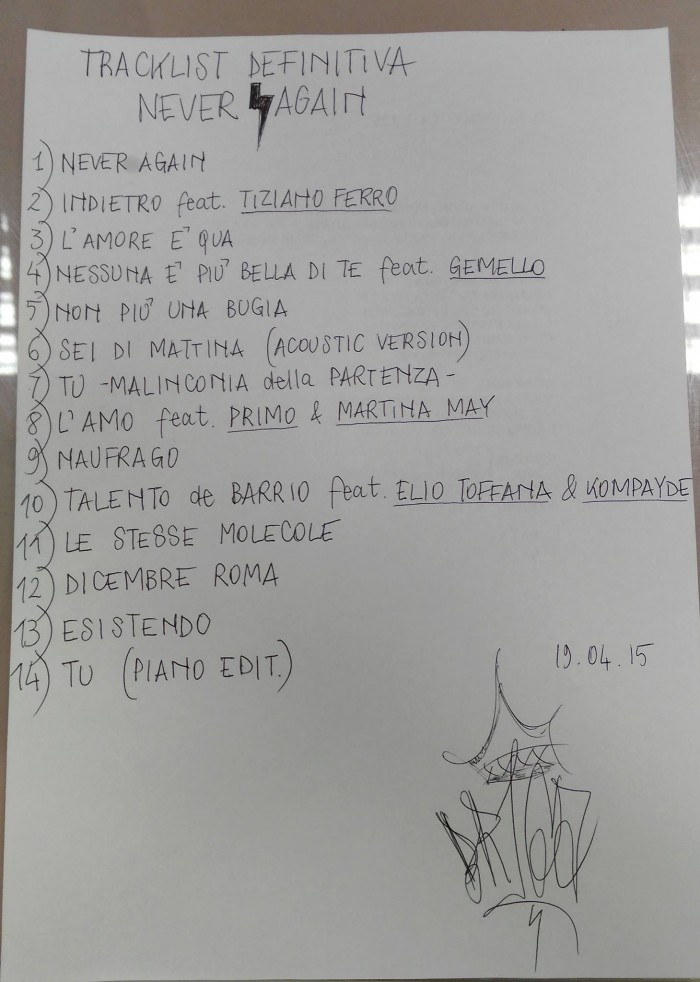 TRACKLIST DEFINITIVA
NEVER AGAIN
1) NEVER AGAIN
2) INDIETRO feat. TIZIANO FERRO
3) L'AMORE E' QUA
4) NESSUNA E' PIU' BELLA DI TE feat. GEMELLO
5) NON PIU' UNA BUGIA
6) SEI DI MATTINA (ACOUSTIC VERSION)
7) TU -MALINCONIA della PARTENZA-
8) L'AMO feat. PRIMO & MARTINA MAY
9) NAUFRAGO
10) TALENTO de BARRIO feat. ELIO TOFFANA & KOMPAYDE
11) LE STESSE MOLECOLE
12) DICEMBRE ROMA
13) ESISTENDO
14) TU (PIANO EDIT.)
19.04.15